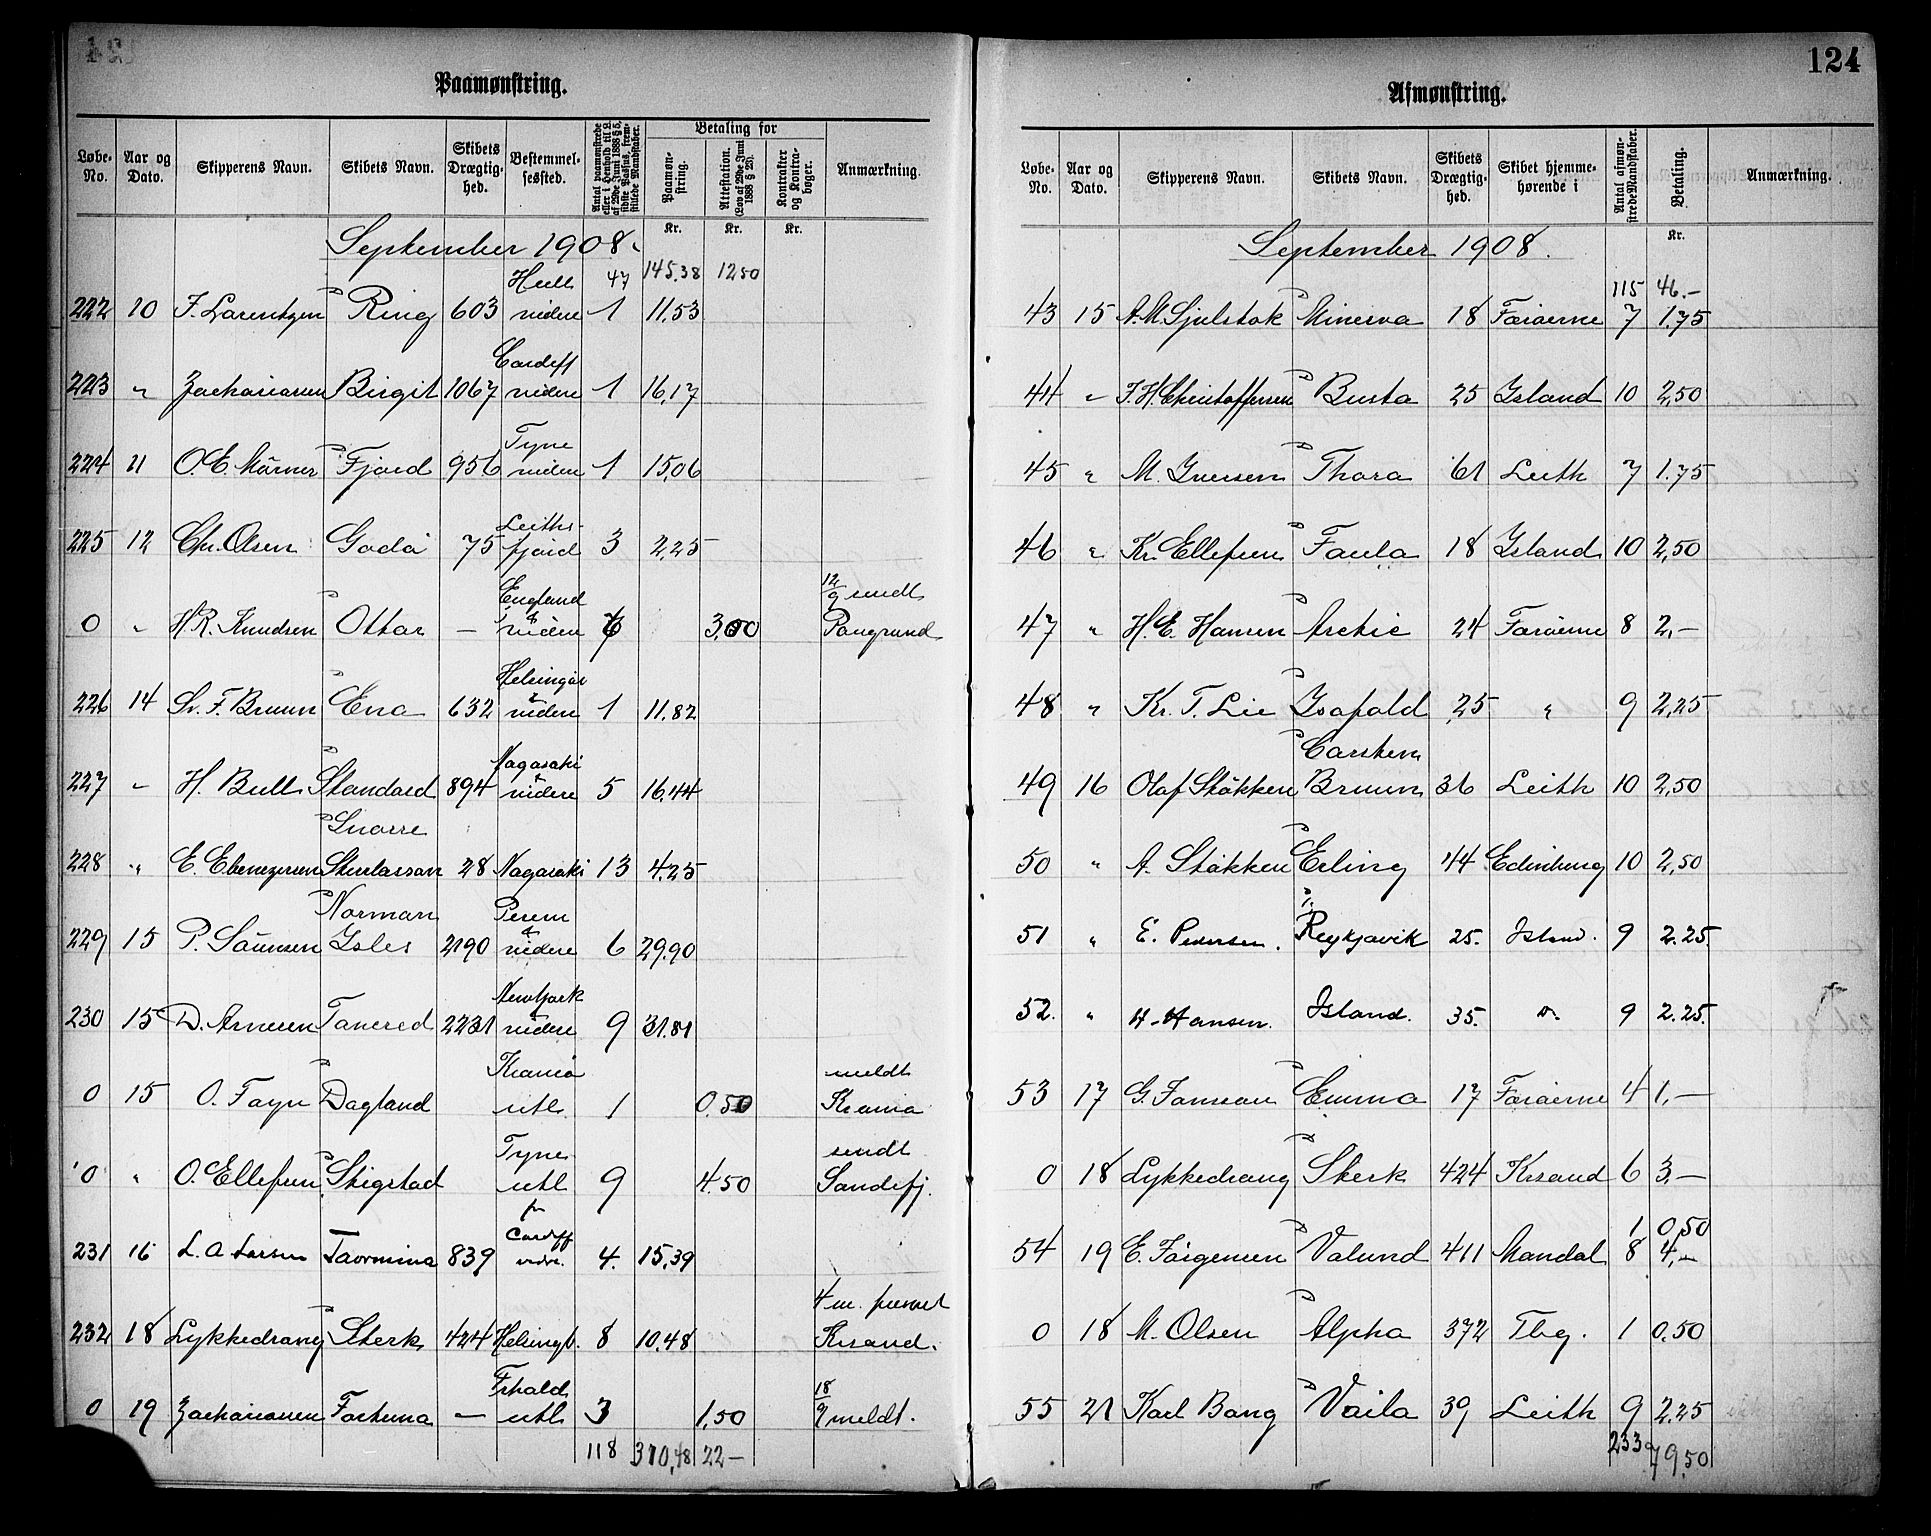 124
Paamønstring.
Løbe-No. Aar og Dato. Skipperens Navn. Skibets Navn. Skibets Drægtighed. Bestemmelsessted. Antal paamønstrede eller i Henhold til L. af 29de Juni 1888 § 5, sidste Passus, fremstillede Mandskaber. Betaling for Paamønstring. Attestation. (Lov af 29de Juni 1888 § 25). Kontrakter og Kontrabøger. Anmærkning.
Kr. Kr. Kr.
September 1908.
47 145.38 12 50
222 10 F. Larentzen D Ring 603 Hull videre 1 11,53
223 " Zachariasen Birgit 1067 Cardiff videre 1 16,17
224 11 O. E. Mörner D Fjord 956 Tyne videre 1 15,06
225 12 Chr. Olsen Goda 75 Leiths- fjord 3 2,25
0 " H R. Knudsen Ottar — England & videre 6 3,00 12/9 sendt Porsgrund
226 14 Sv. F. Bruun Ena 632 Helsingör & videre 1 11.82
227 " H. Bull D Standard 894 Nagasaki & videre 5 16,44
228 " E. Ebenezersen D Snorre Sturlasson 28 Nagasaki 13 4.25
229 15 P. Sörensen D Norman Isles 2190 & videre 6 29.90
230 15 D. Arnesen Tancred 2231 Newyork & videre 9 31.81
0 15 O. Fayn D Dagland Kramfo utl. 1 0.50 meldt
0 " O. Ellefsen D Stigstad Tyne utl 9 4.50 sendt Sandefj.
231 16 L. A. Larsen Taormina 839 Cardiff vidre. 4. 15,39
232 18 Lykkedrang Sterk 424 Helsingb. 8 10.48 4 m. Krsand.
0 19 Zachariassen Fortuna — Frhald utl 3 1,50 18/9 meldt.
118 310,48 22—
Afmønstring.
Løbe-No. Aar og Dato. Skipperens Navn. Skibets Navn. Skibets Drægtighed. Skibet hjemmehørende i Antal afmønstrede Mandskaber. Betaling. Anmærkning.
Kr.
September 1908.
115 46.—
43 15 A. M. Sjulstok D Minerva 18 Færöerne 7 1.75
44 " F. H. Christoffersen D Busta 25 Island 10 2,50
45 " M. Iversen D Thora 61 Leith 7 1.75
46 " Kr. Ellefsen D Faula 18 Island 10 2,50
47 " H. E. Hansen Arctic 24 Færöerne 8 2,—
48 " Kr. T. Lie D Isafold 25 " 9 2,25
49 16 Olaf Stökken D Carsten Bruun 36 Leith 10 2,50
50 " A. Stökken D Erling 44 Edinburg 10 2,50
51 " E. Pedersen. D Reykjavik 25. Island. 9 2.25
52. " H. Hansen. Island. 35. 9 2.25.
53 17 G. Jamson Emma 17 Færöerne 4 1,—
0 18 Lykkedrang D Sterk 424 Krsand 6 3,—
1 0,50
54 19 E. Jörgensen D Valund 411 Mandal 8 4,—
0 18 M. Olsen D Alpha 372 Tbg. 1 0.50
55 21 Karl Bang D Vaila 39 Leith 9 2.25
233 79.50